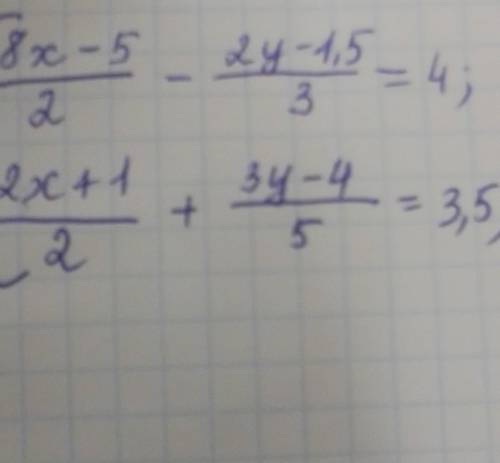 (8x-5)/2 - (2y-1,5)/3 = 4;
(2x+1)/2 + (3y-4)/5 = 3,5,